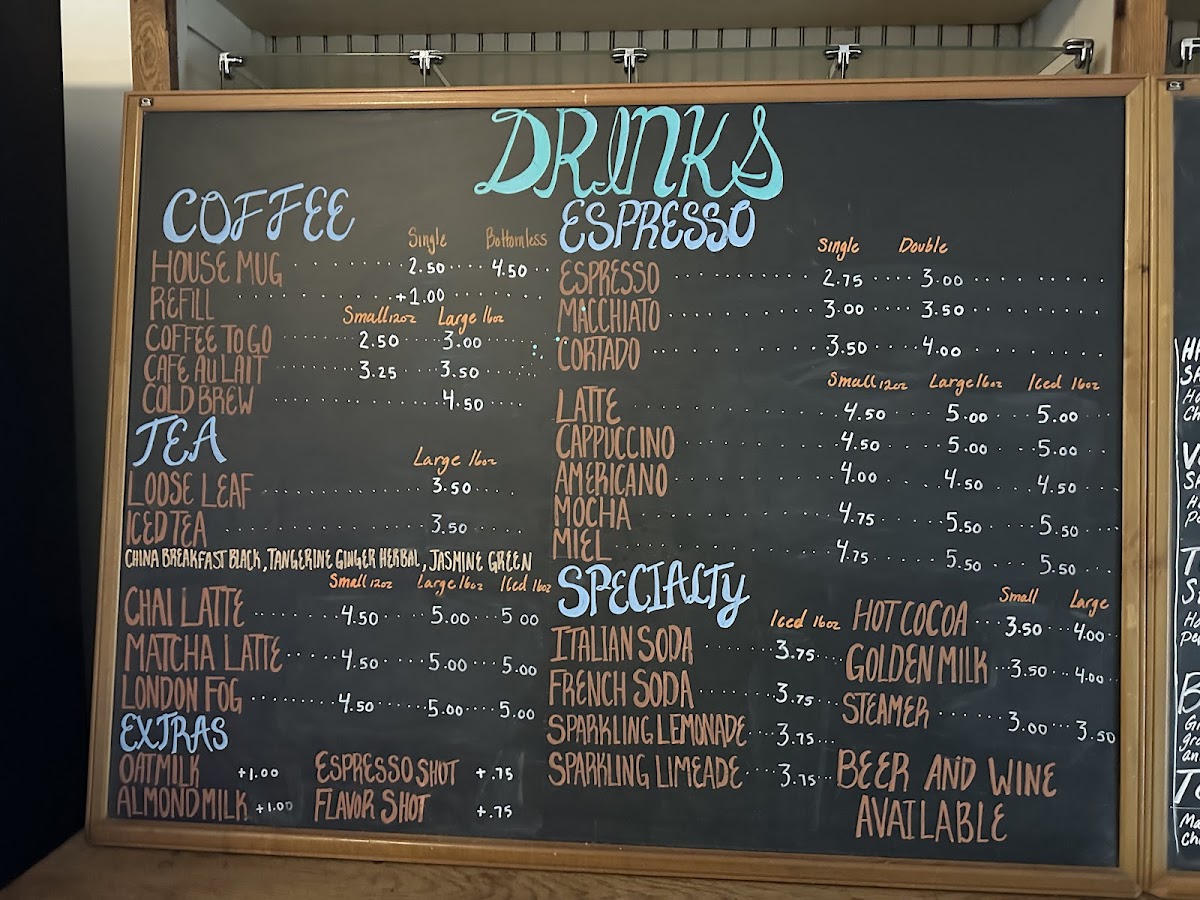 DRINKS
COFFEE
Single Bottomless
HOUSE MUG 2.50 4.50
REFILL +1.00
Small 12oz Large 16oz
COFFEE TO GO 2.50 3.00
CAFE AU LAIT 3.25 3.50
COLD BREW 4.50
TEA
Large 16oz
LOOSE LEAF 3.50
ICED TEA 3.50
CHINA BREAKFAST BLACK, TANGERINE GINGER HERBAL, JASMINE GREEN
Small 12oz Large 16oz Iced 16oz
CHAI LATTE 4.50 5.00 5.00
MATCHA LATTE 4.50 5.00 5.00
LONDON FOG 4.50 5.00 5.00
EXTRAS
OATMILK +1.00 ESPRESSO SHOT +.75
ALMOND MILK +1.00 FLAVOR SHOT +.75
ESPRESSO
Single Double
ESPRESSO 2.75 3.00
MACCHIATO 3.00 3.50
CORTADO 3.50 4.00
Small 12oz Large 16oz Iced 16oz
LATTE 4.50 5.00 5.00
CAPPUCCINO 4.50 5.00 5.00
AMERICANO 4.00 4.50 4.50
MOCHA 4.75 5.50 5.50
MIEL 4.75 5.50 5.50
SPECIALTY
Iced 16oz
ITALIAN SODA 3.75
FRENCH SODA 3.75
SPARKLING LEMONADE 3.75
SPARKLING LIMEADE 3.75
Small Large
HOT COCOA 3.50 4.00
GOLDEN MILK 3.50 4.00
STEAMER 3.00 3.50
BEER AND WINE
AVAILABLE